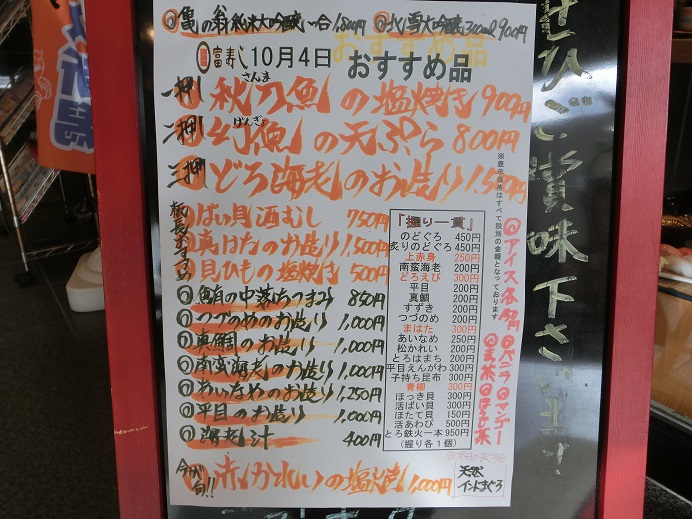 亀の翁純米大吟醸一合1,800円
北雪大吟醸300ml 900円
富寿し10月4日
おすすめ品
一押し 秋刀魚の塩焼き 900円
さんま
二押 幻魚の天ぷら 800円
げんぎ
三押 どろ海老のお造り 1,500円
板長おすすめ
ばい貝酒むし 750円
真はたのお造り 1,500円
貝ひもの塩焼き 500円
鮪の中落ちつまみ 850円
つづめのお造り 1,000円
真鯛のお造り 1,000円
南蛮海老のお造り 1,000円
あいなめのお造り 1,250円
平目のお造り 1,000円
海老汁 400円
今が旬!! 赤かれいの塩焼 1,000円
※表示価格はすべて税別の金額となっております
「握り一貫」
のどぐろ 450円
炙りのどぐろ 450円
上赤身 250円
南蛮海老 200円
どろえび 300円
平目 200円
真鯛 200円
すずき 200円
つづのめ 200円
まはた 300円
あいなめ 250円
松かれい 200円
とろはまち 200円
平目えんがわ 300円
子持ち昆布 300円
青柳 300円
ほっき貝 300円
活ばい貝 300円
ほたて貝 150円
活あわび 500円
とろ鉄火一本 950円
(握り各1個)
アイス各
バニラ
マンデー
玄茶
ほうじ茶
天然
インドまぐろ
ぜひご賞味下さいませ